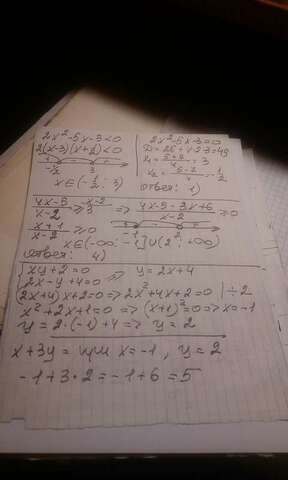 2x²-5x-3<0
2(x-3)(x+½)<0
-1/2 3
x∈(-½; 3)
2x²-5x-3=0
D=25+4·2·3=49
x₁=(5+7)/4=3
x₂=(5-7)/4=-1/2
ответ: 1)
(4x-5)/(x-2)≥3 => (4x-5-3x+6)/(x-2)≥0
(x+1)/(x-2)≥0
-1 2
x∈(-∞; -1]∪(2; +∞)
ответ: 4)
{xy+2=0 => y=2x+4
2x-y+4=0
(2x+4)x+2=0 => 2x²+4x+2=0 | ÷2
x²+2x+1=0 => (x+1)²=0 => x=-1
y=2·(-1)+4 => y=2
x+3y= при x=-1, y=2
-1+3·2=-1+6=5